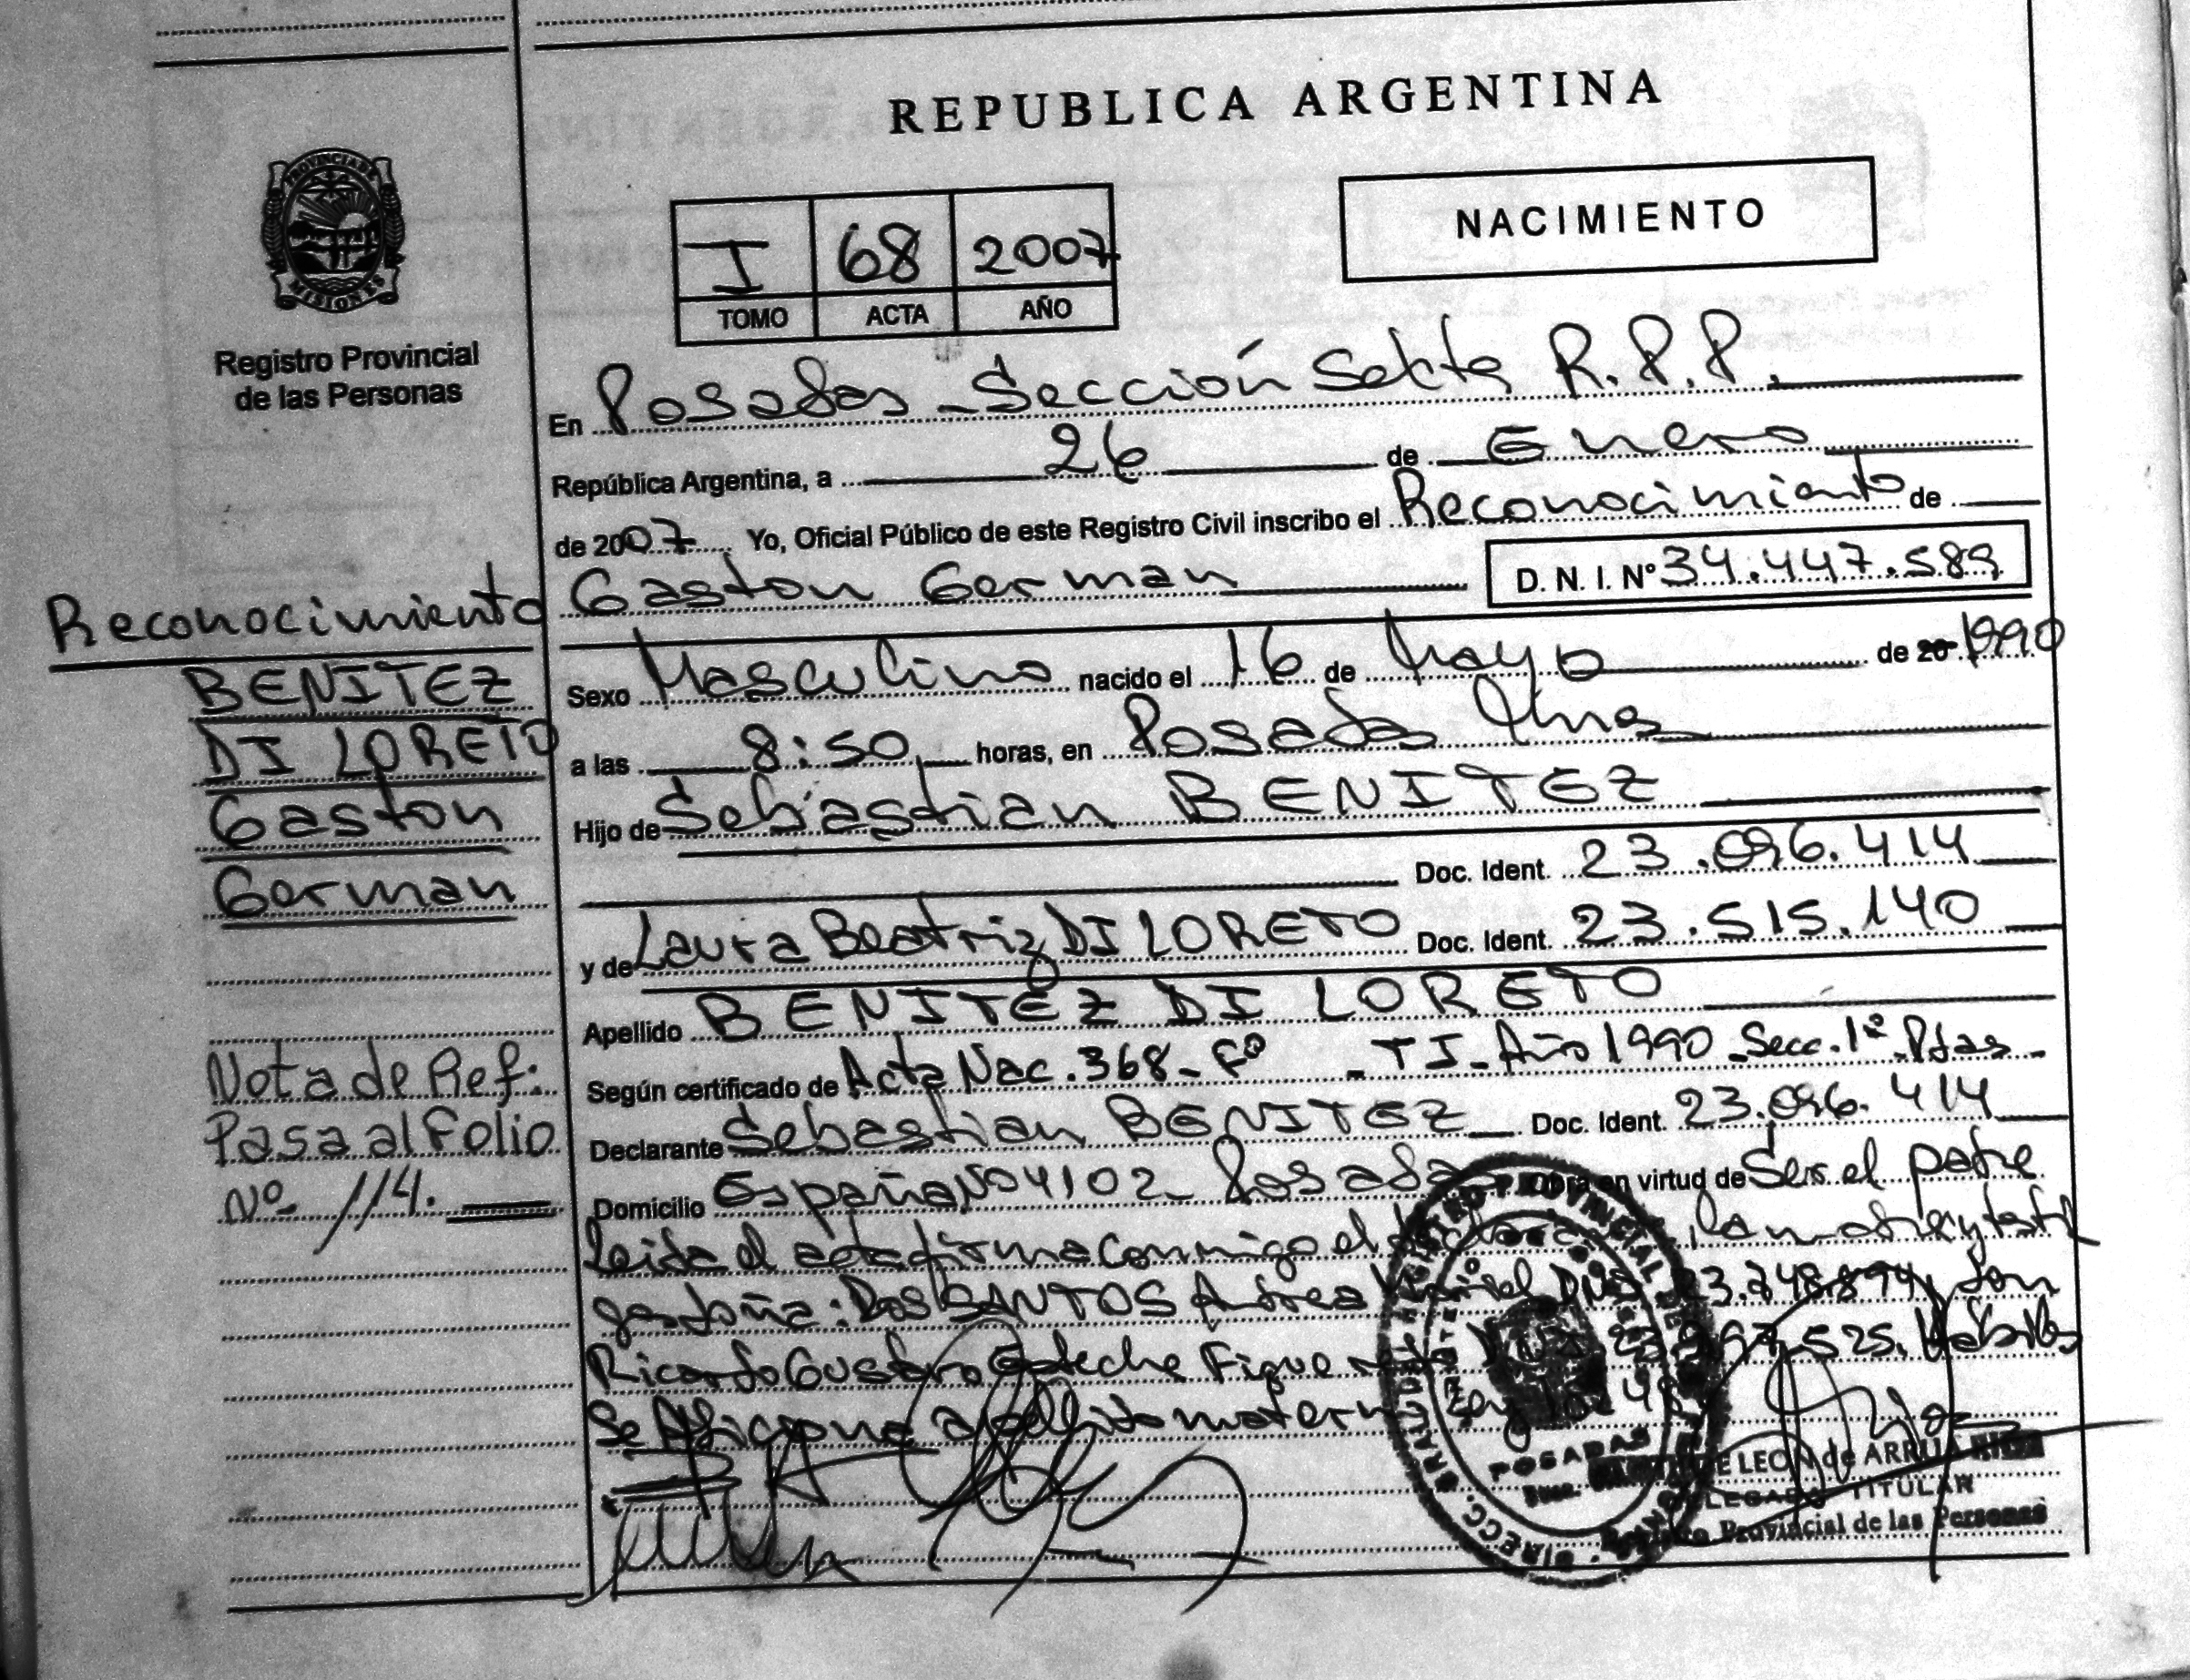 REPUBLICA ARGENTINA
PROVINCIA DE
MISIONES
Registro Provincial
de las Personas
I 68 2007
TOMO ACTA AÑO
NACIMIENTO
En Posadas - Sección Sexta R.P.P.
República Argentina, a 26 de Enero
de 2007. Yo, Oficial Público de este Registro Civil inscribo el Reconocimiento de
Gaston German D. N. I. Nº 34.447.589
Sexo Masculino nacido el 16 de Mayo de 20 1990
a las 8:50 horas, en Posadas Mnes
Hijo de Sebastian BENITEZ
Doc. Ident. 23.096.414
y de Laura Beatriz DI LORETO Doc. Ident. 23.515.140
Apellido BENITEZ DI LORETO
Según certificado de Acta Nac. 368 - Fº - TI - Año 1990 - Secc. 1ª - Pdas -
Declarante Sebastian BENITEZ Doc. Ident. 23.096.414
Domicilio España Nº 4102 - Posadas Obra en virtud de Ser el padre
Leida el acta firma conmigo el la madre y testi
gos doña: Dos SANTOS Andrea DNI don
Ricardo Gustavo Habiles
Se Adiciona apellido materno Ley
Reconocimiento
BENITEZ
DI LORETO
Gaston
German
Nota de Ref:
Pasa al Folio
Nº 114.
POSADAS
DE LEON de ARRUA
DELEGADO TITULAR
Registro Provincial de las Personas